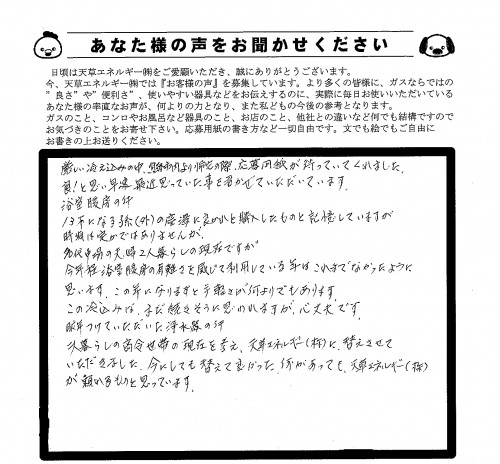 あなた様の声をお聞かせください
日頃は天草エネルギー㈱をご愛顧いただき、誠にありがとうございます。
今、天草エネルギー㈱では『お客様の声』を募集しています。より多くの皆様に、ガスならではの
"良さ"や"便利さ"、使いやすい器具などをお伝えするのに、実際に毎日お使いいただいている
あなた様の率直なお声が、何よりの力となり、また私どもの今後の参考となります。
ガスのこと、コンロやお風呂など器具のこと、お店のこと、他社との違いなど何でも結構ですので
お気づきのことをお寄せ下さい。応募用紙の書き方など一切自由です。文でも絵でもご自由に
お書きの上お送りください。
厳しい冷え込みの中、より帰宅の際、応募用紙が待っていてくれました。
良!と思い早速最近思っていた事を書かせていただいています。
浴室暖房の件
13年になる孫(外)の産湯に良かれと購入したものと記憶していますが
時期は定かではありませんが、
夫婦2人暮らしの現在ですが
今年程浴室暖房の有難さを感じて利用している年はこれまでなかったように
思います。この年になりますと手軽さが何よりでもあります。
この冷込みは、まだ続きそうに思われますが、心丈夫です。
昨年つけていただいた浄水器の件
2人暮らしの高令世帯の現在を考え、天草エネルギー(株)に替えさせて
いただきました。今にしても替えて良かった。何があっても、天草エネルギー(株)
が頼れるものと思っています。